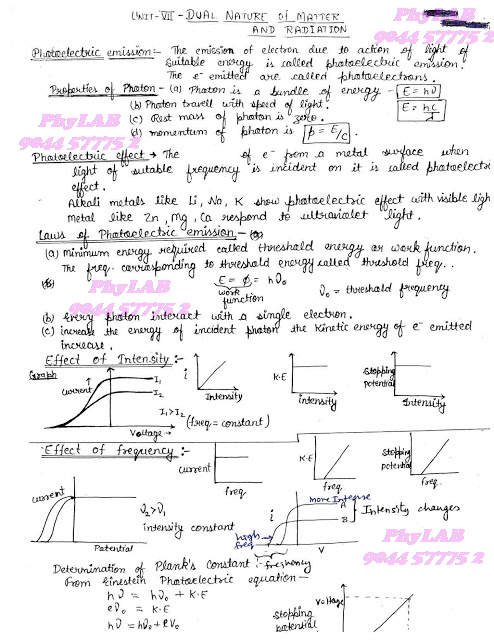 UNIT-VII - DUAL NATURE OF MATTER
AND RADIATION
PhyLAB
Photoelectric emission:- The emission of electron due to action of light of
suitable energy is called photoelectric emission.
The e⁻ emitted are called photoelectrons.
Properties of Photon - (a) Photon is a bundle of energy - E = hν
(b) Photon travell with speed of light. E = hc/λ
PhyLAB
9044 57775 2
(c) Rest mass of photon is zero.
(d) momentum of photon is p = E/c.
Photoelectric effect → The of e⁻ from a metal surface when
light of suitable frequency is incident on it is called photoelectri
effect.
Alkali metals like Li, Na, K show photoelectric effect with visible ligh
metal like Zn, Mg, Ca respond to ultraviolet light.
Laws of Photoelectric emission - (a)
(a) minimum energy required called threshold energy or work function.
The freq. corrosponding to threshold energy called threshold freq..
PhyLAB
9044 57775 2
(b) E = ϕ = hν₀
work
function
ν₀ = threshold frequency
(b) Every photon interact with a single electron.
(c) increase the energy of incident photon the Kinetic energy of e⁻ emitted
increase.
Effect of Intensity :-
Graph
current
I₁
I₂
I₁>I₂
Voltage →
(freq = constant)
i
Intensity
K.E
intensity
Stopping
potential
Intensity
Effect of frequency :-
current
freq
K.E
freq.
Stopping
potential
freq.
current
ν₂>ν₁
intensity constant
Potential
i
more Intense
A
B
Intensity changes
high
freq
V
frequency
PhyLAB
9044 57775 2
Determination of Plank's Constant :-
From Einestein Photoelectric equation -
hν = hν₀ + K.E
eV₀ = K.E
hν = hν₀ + eV₀
Voltage
stopping
potential